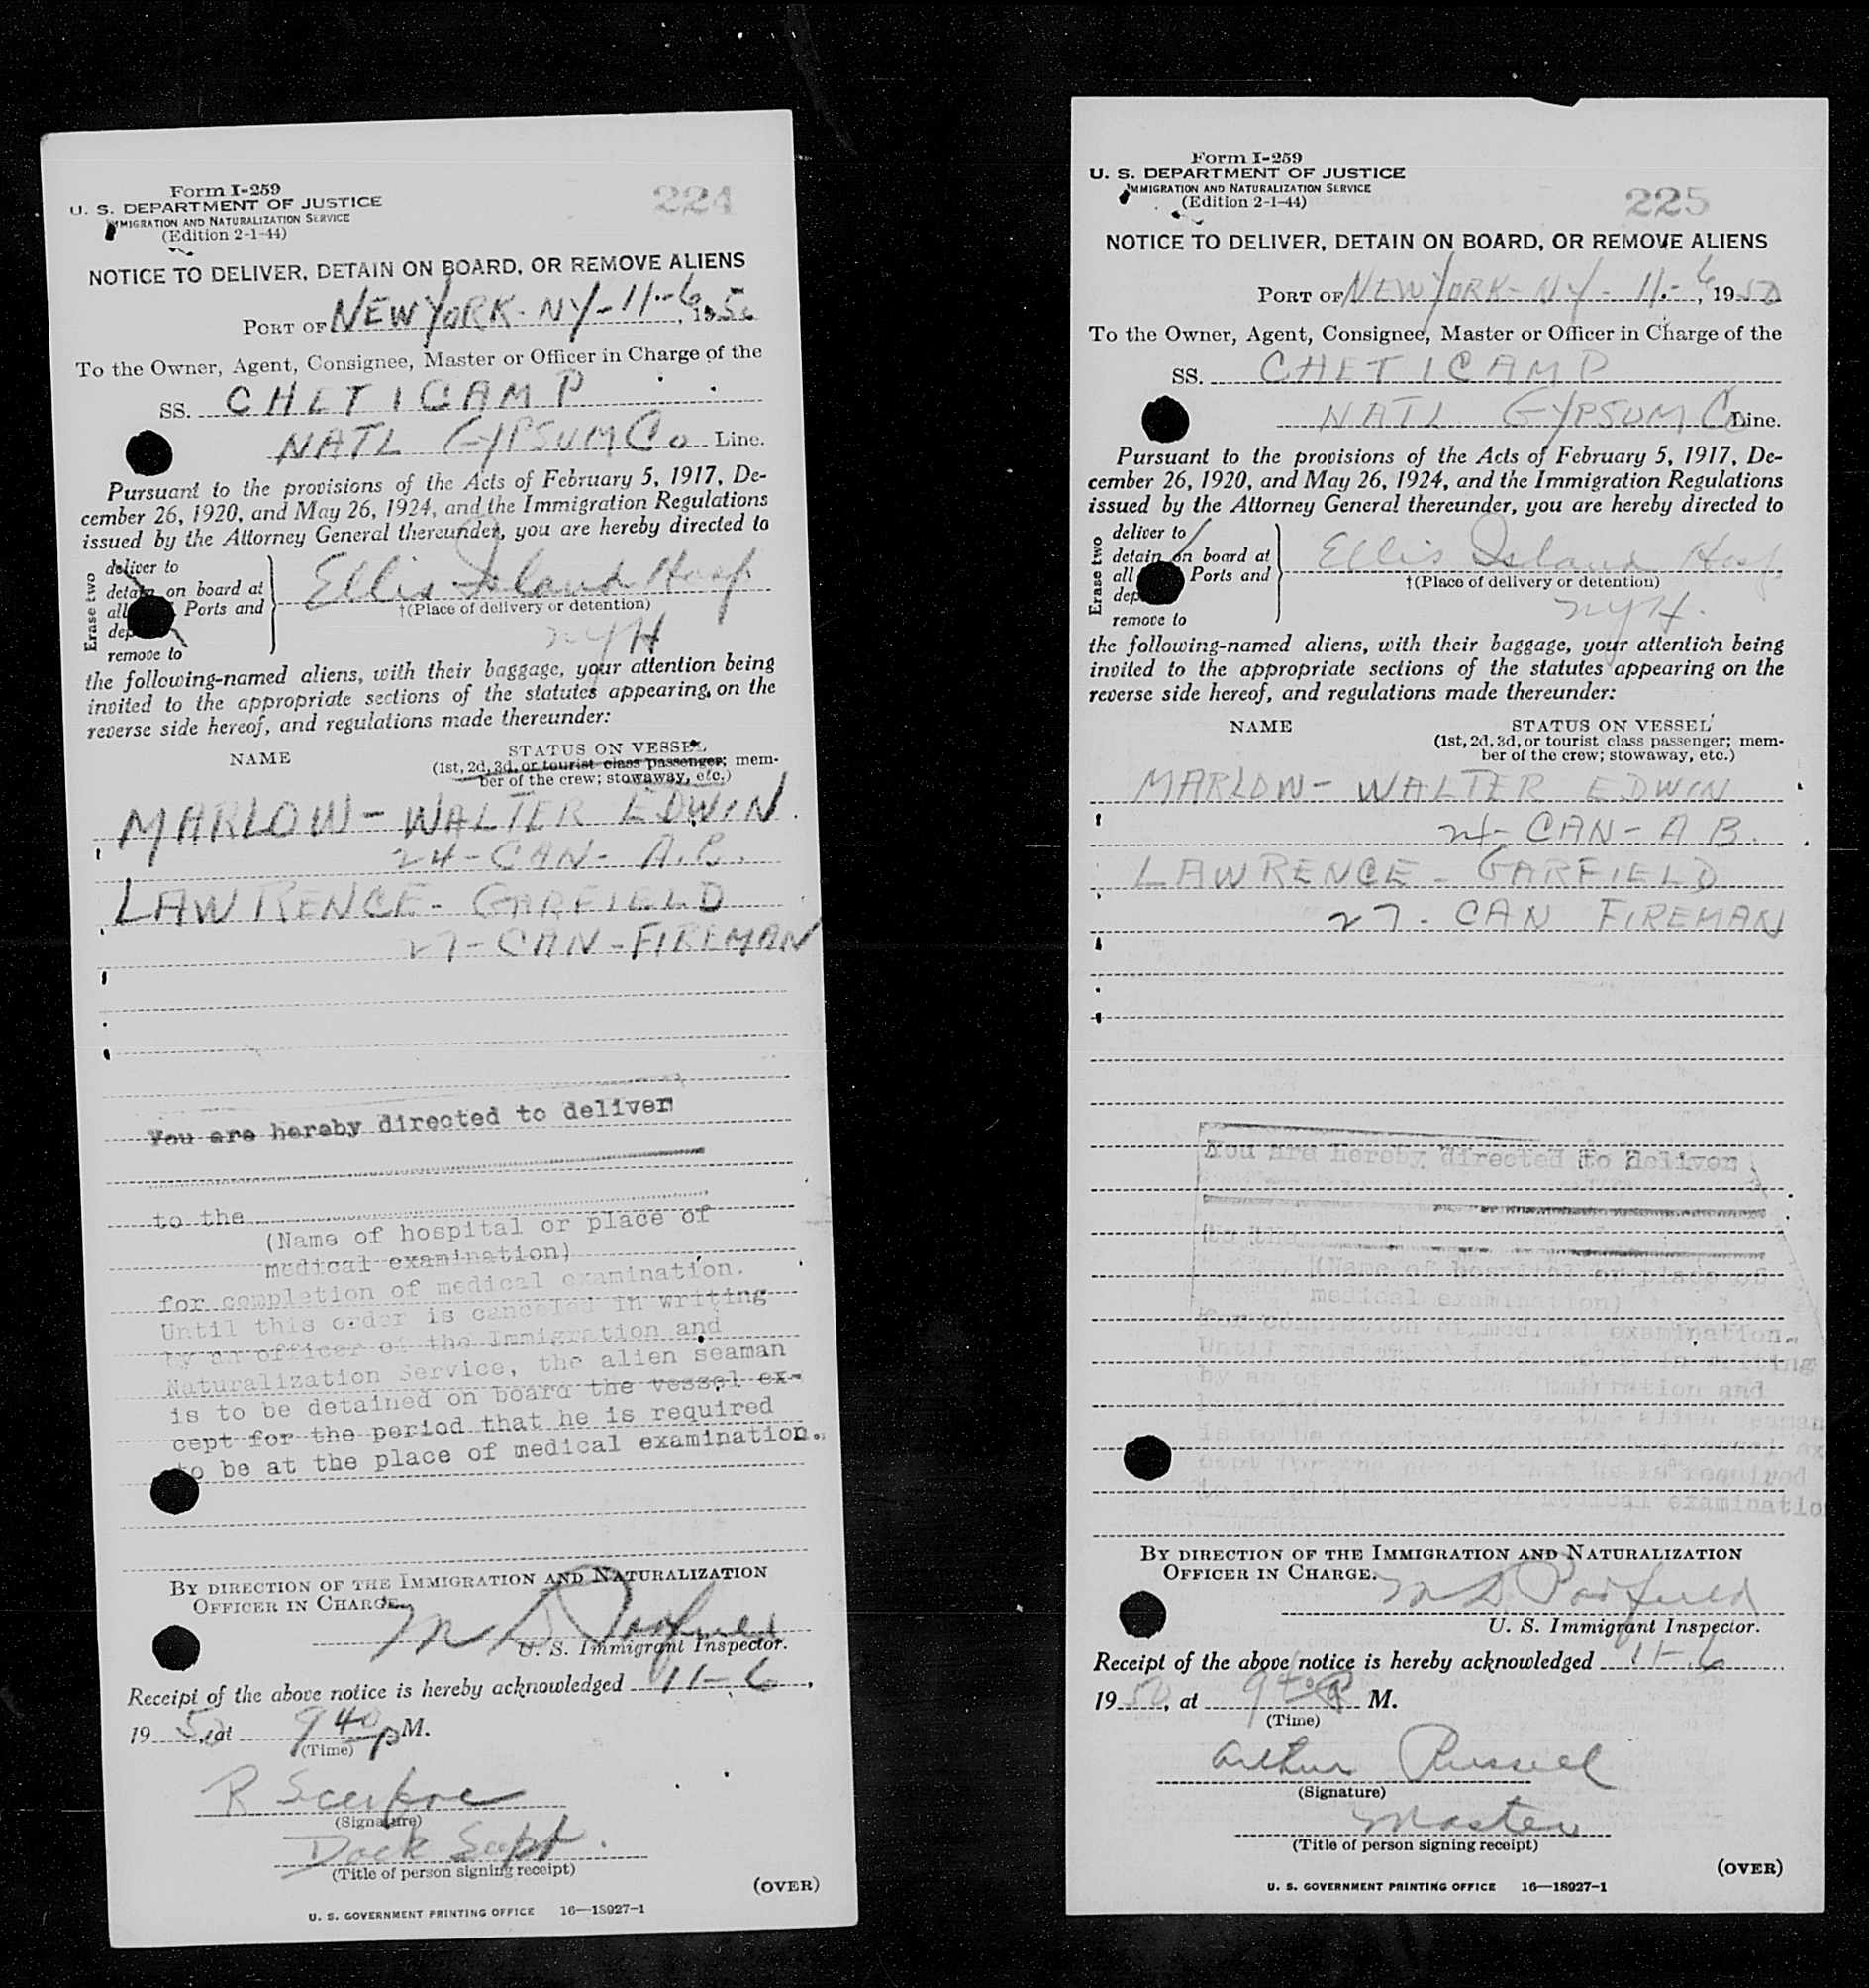 Form I-259
U. S. DEPARTMENT OF JUSTICE
IMMIGRATION AND NATURALIZATION SERVICE
(Edition 2-1-44)
224
NOTICE TO DELIVER, DETAIN ON BOARD, OR REMOVE ALIENS
PORT OF NEW YORK - NY - 11 - 6, 1950
To the Owner, Agent, Consignee, Master or Officer in Charge of the
SS. CHETICAMP
NATL GYPSUM Co Line.
Pursuant to the provisions of the Acts of February 5, 1917, De-
cember 26, 1920, and May 26, 1924, and the Immigration Regulations
issued by the Attorney General thereunder, you are hereby directed to
Erase two
deliver to
detain on board at
all Ports and
dep
remove to
Ellis Island Hosp
†(Place of delivery or detention)
NYH
the following-named aliens, with their baggage, your attention being
invited to the appropriate sections of the statutes appearing on the
reverse side hereof, and regulations made thereunder:
NAME STATUS ON VESSEL
(1st, 2d, 3d, or tourist class passenger; mem-
ber of the crew; stowaway, etc.)
MARLOW - WALTER EDWIN
24 - CAN - A.B.
LAWRENCE - GARFIELD
27 - CAN - FIREMAN
You are hereby directed to deliver
to the
(Name of hospital or place of
medical examination)
for completion of medical examination.
Until this order is canceled in writing
by an officer of the Immigration and
Naturalization Service, the alien seaman
is to be detained on board the vessel ex-
cept for the period that he is required
to be at the place of medical examination.
BY DIRECTION OF THE IMMIGRATION AND NATURALIZATION
OFFICER IN CHARGE.
M D
U. S. Immigrant Inspector.
Receipt of the above notice is hereby acknowledged 11-6,
1950, at 9 40 P M.
(Time)
R
(Signature)
Dock Supt.
(Title of person signing receipt)
(OVER)
U. S. GOVERNMENT PRINTING OFFICE 16—18927-1
Form I-259
U. S. DEPARTMENT OF JUSTICE
IMMIGRATION AND NATURALIZATION SERVICE
(Edition 2-1-44)
225
NOTICE TO DELIVER, DETAIN ON BOARD, OR REMOVE ALIENS
PORT OF NEW YORK - NY - 11 - 6, 1950
To the Owner, Agent, Consignee, Master or Officer in Charge of the
SS. CHETICAMP
NATL GYPSUM Co Line.
Pursuant to the provisions of the Acts of February 5, 1917, De-
cember 26, 1920, and May 26, 1924, and the Immigration Regulations
issued by the Attorney General thereunder, you are hereby directed to
Erase two
deliver to
detain on board at
all Ports and
dep
remove to
Ellis Island Hosp
†(Place of delivery or detention)
NYH.
the following-named aliens, with their baggage, your attention being
invited to the appropriate sections of the statutes appearing on the
reverse side hereof, and regulations made thereunder:
NAME STATUS ON VESSEL
(1st, 2d, 3d, or tourist class passenger; mem-
ber of the crew; stowaway, etc.)
MARLOW - WALTER EDWIN
24 - CAN - A B.
LAWRENCE - GARFIELD
27 - CAN FIREMAN
You are hereby directed to deliver
to the
(Name of hospital or place of
medical examination)
for completion of medical examination.
Until in writing
by an Immigration and
seaman
is to be vessel ex
cept that he is required
medical examinatio
BY DIRECTION OF THE IMMIGRATION AND NATURALIZATION
OFFICER IN CHARGE.
M D
U. S. Immigrant Inspector.
Receipt of the above notice is hereby acknowledged 11-6
1950, at 9 40 P M.
(Time)
Arthur Russell
(Signature)
Master
(Title of person signing receipt)
(OVER)
U. S. GOVERNMENT PRINTING OFFICE 16—18927-1